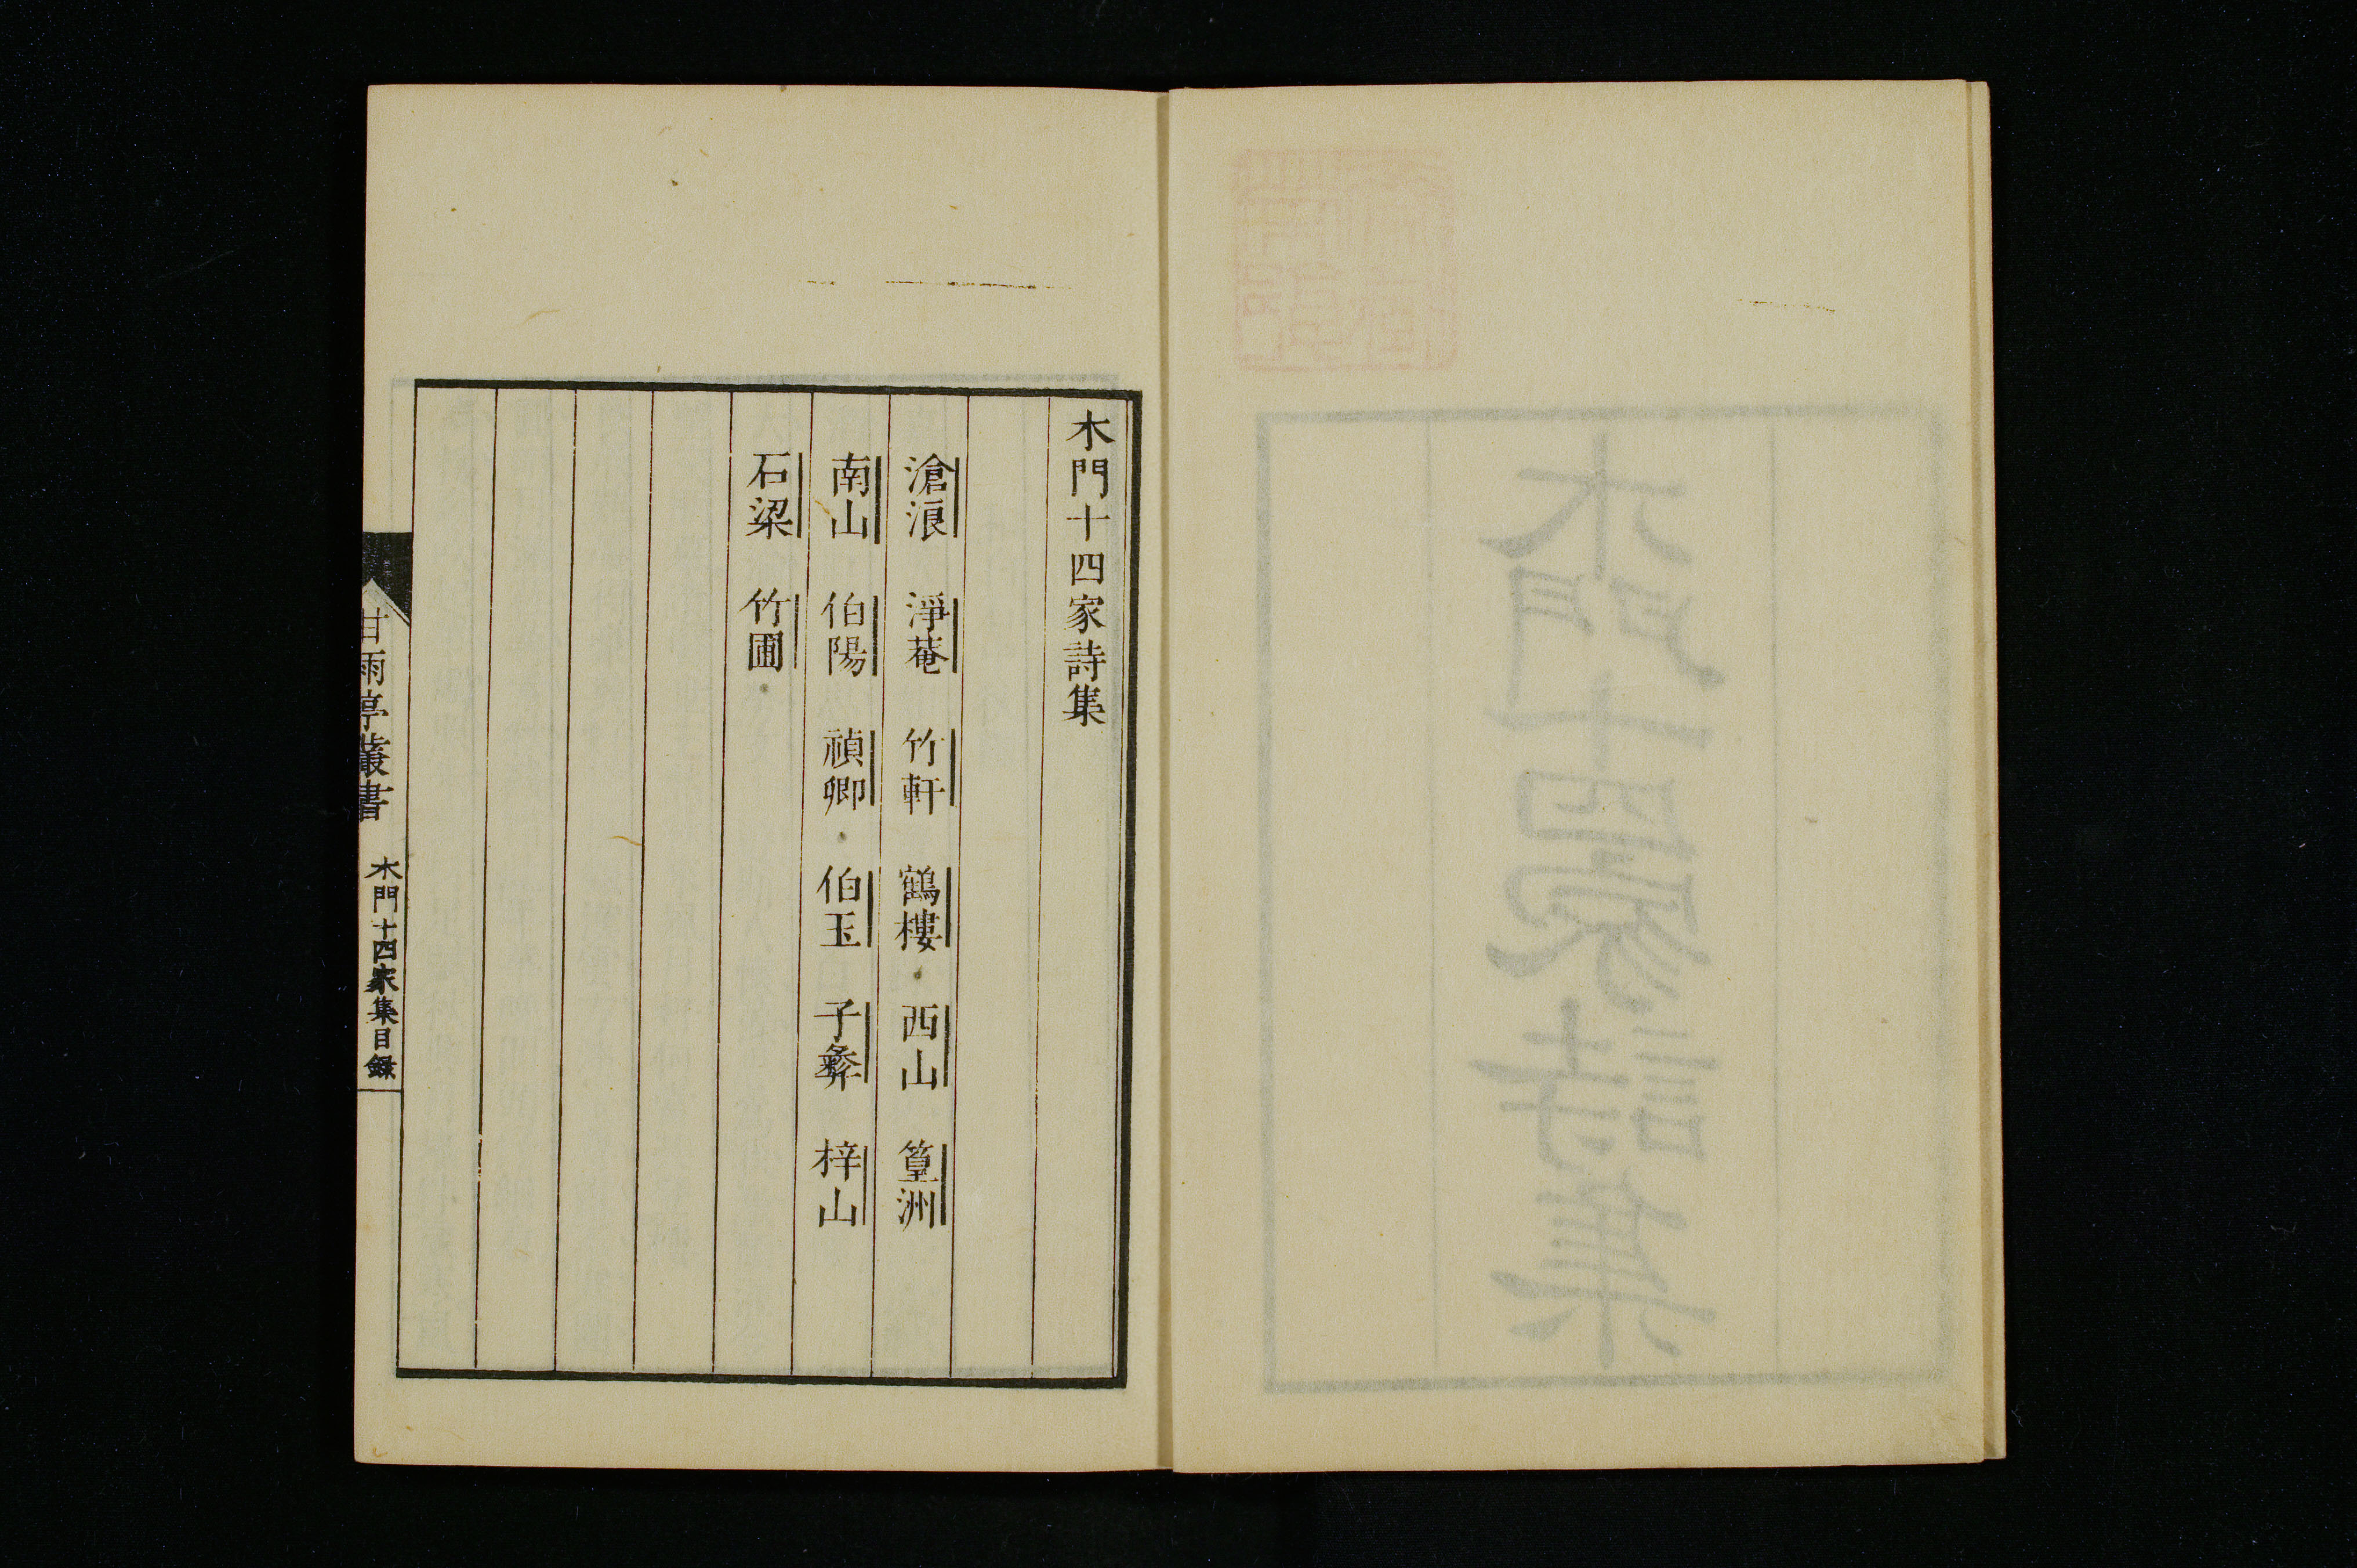 木門十四家詩集
滄浪　淨菴　竹軒　鶴樓　西山　篁洲
南山　伯陽　禎卿　伯玉　子彝　梓山
石梁　竹圃
甘雨亭叢書　木門十四家集目錄
木門十四家詩集